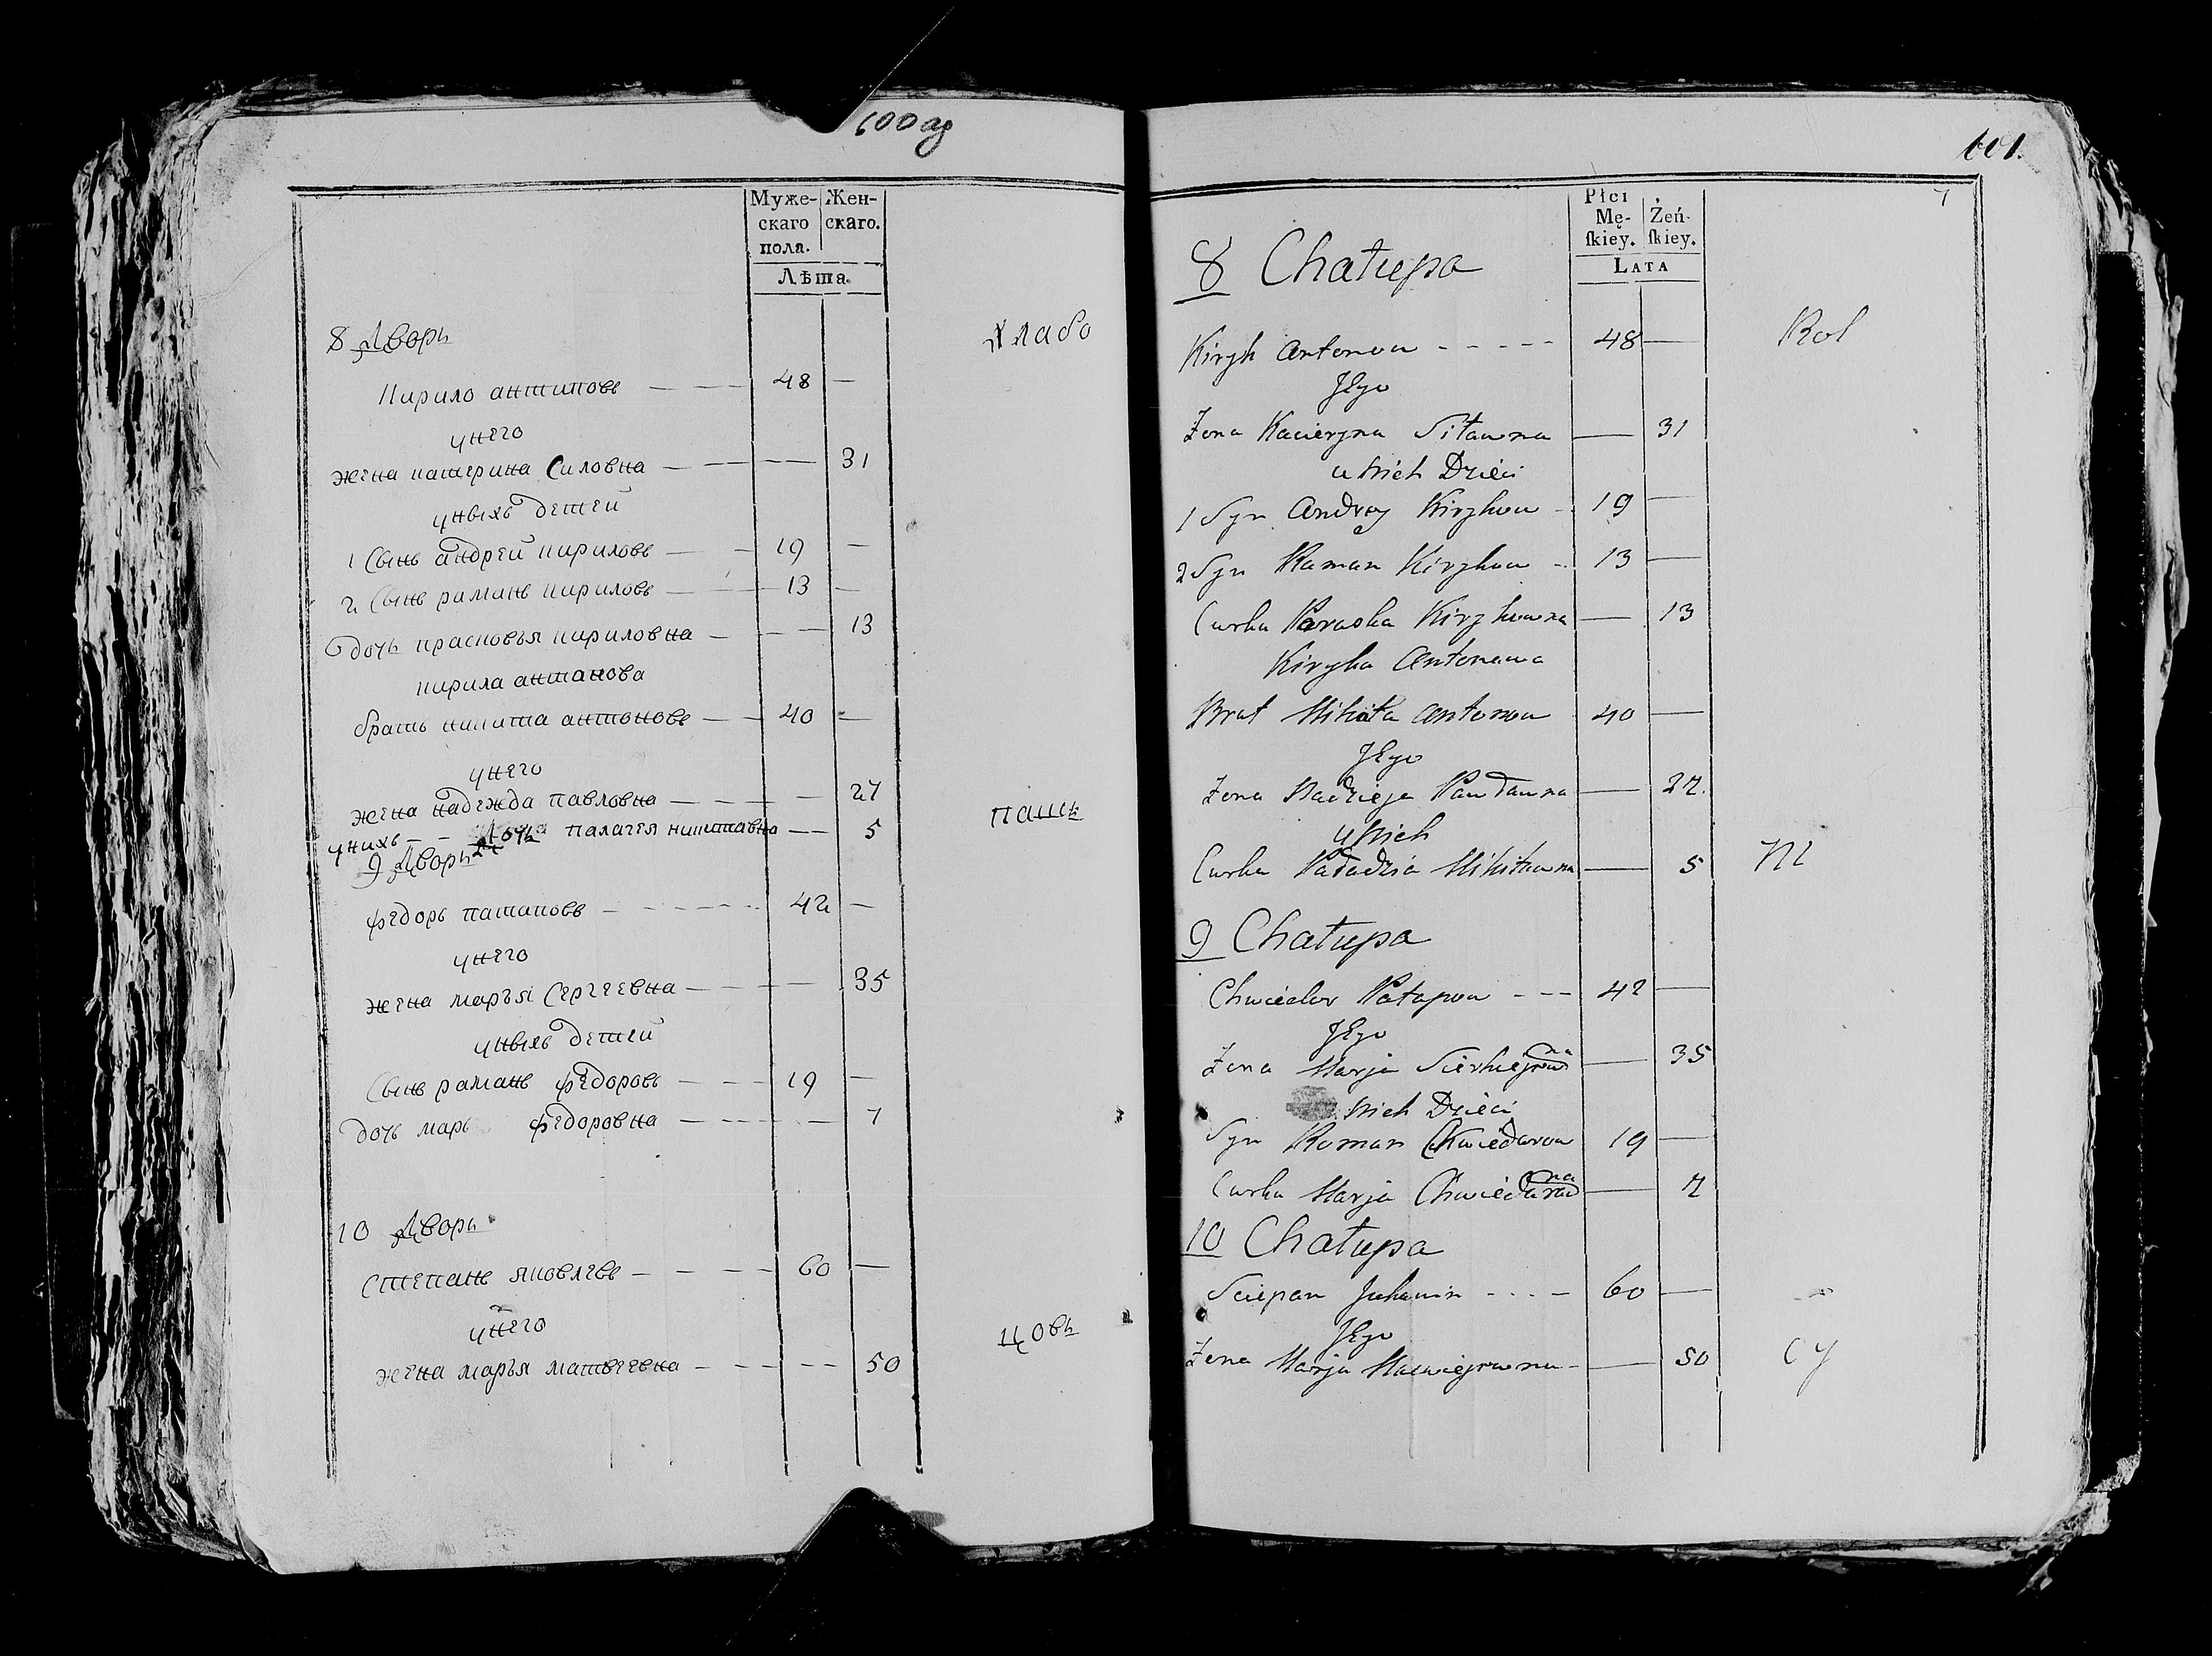 600 об
Муже-
скаго
пола.
Жен-
скаго.
Лѣта.
8 Дворъ
Кирило антиповъ — — — 48 —
унего
жена катерина Силовна — — — 31
унихъ детей
1 Сынъ андрей кириловъ — — 19 —
2 Сынъ раманъ кириловъ — — 13 —
дочь прасковья кириловна — — — 13
кирила антанова
братъ никита антоновъ — — 40 —
унего
жена надежда павловна — — — — 27
унихъ — — дочь палагея никитавна — — 5
9 Дворъ
федоръ патаповъ — — — — — 42 —
унего
жена марья Сергеевна — — — — 35
унихъ детей
Сынъ раманъ федоровъ — — — 19 —
дочь марь федоровна — — — — 7
10 Дворъ
Степанъ яковлевъ — — — — 60 —
унего
жена марья матвеевна — — — — 50
пашк
цовъ
601.
7
Płci
Mę-
skiey.
Żeń-
skiey.
LATA
8 Chałupa
Kiryk Antonow - - - - - 48 —
Jego
Żona Kacieryna Siławna — 31
u Nich Dzieci
1 Syn Andrey Kirykow - 19 —
2 Syn Raman Kirykow - 13 —
Curka Paraska Kirykowna — 13
Kiryka Antonawa
Brat Mikita Antonow 40 —
Jego
Żona Nadzieja Pawławna — 27.
u Nich
Curka Paładzia Mikitawna — 5
9 Chałupa
Chwiedor Patapow - - - 42 —
Jego
Żona Marja Sierhiejewna — 35
Nich Dzieci
Syn Roman Chwiedarow 19 —
Curka Marja Chwiedarowna — 7
10 Chałupa
Sciepan Jakowin - - - - 60 —
Jego
Żona Marja Maciejewna - — 50
Rol